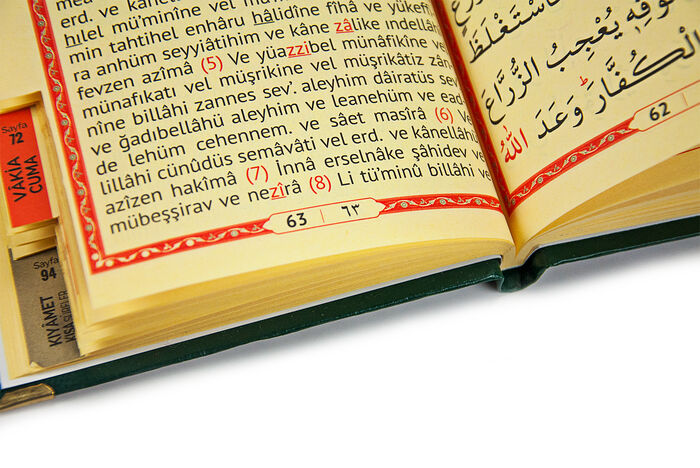 erd. ve
hılel mü'minîne vel
min tahtihel enhâru hâlidîne fîhâ ve yükeffi
ra anhüm seyyiâtihim ve kâne zâlike ındellâhi
fevzen azîmâ (5) Ve yüazzibel münâfikîne vel
münafıkati vel müşrikîne vel müşrikâtiz zân
nîne billâhi zannes sev'. aleyhim dâiratüs sev'
ve ğadıbellâhü aleyhim ve leanehüm ve ead
de lehüm cehennem. ve sâet masîrâ (6) Ve
lillâhi cünûdüs semâvâti vel erd. ve kânellâhü
azîzen hakîmâ (7) İnnâ erselnâke şâhidev ve
mübeşşirav ve nezîrâ (8) Li tü'minû billâhi ve
63 | ٦٣
فَاسْتَغْلَظَ
سُوقِهٖ يُعْجِبُ الزُّرَّاعَ
الْكُفَّارَ وَعَدَ اللّٰهُ
62
Sayfa
72
VÂKIA
CUMA
Sayfa
94
KIYÂMET
KISA SÛRELER